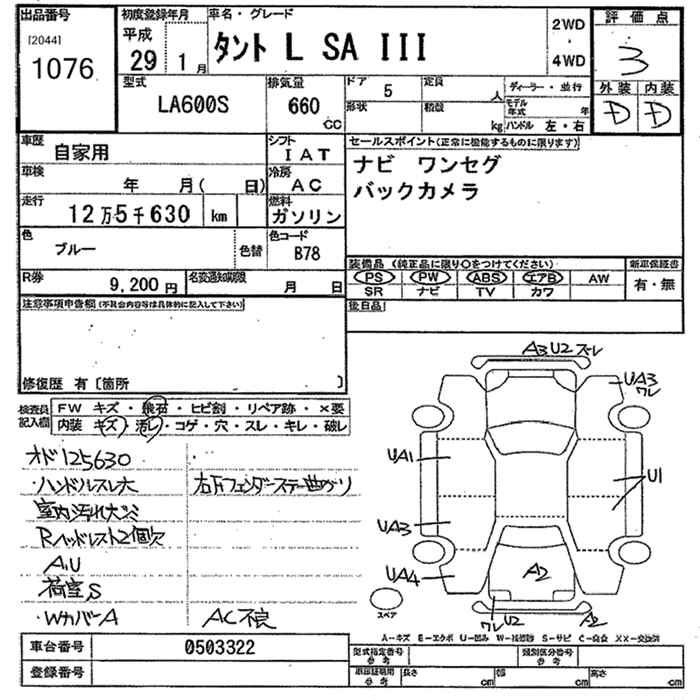 出品番号
[2044]
1076
初度登録年月
平成
29年 1月
車名・グレード
タント L SA III
2WD
・
4WD
評価点
3
外装 内装
D D
型式
LA600S
排気量
660
CC
ドア 5
定員 人
形状
積載 kg
ディーラー・並行
モデル年式 年
ハンドル 左・右
車歴
自家用
シフト
IAT
車検
年 月( 日)
冷房
AC
走行
12万5千630 km
燃料
ガソリン
色
ブルー
色替
色コード
B78
R券
9,200円
名変通知期限
月 日
セールスポイント(正常に機能するものに限ります)
ナビ ワンセグ
バックカメラ
装備品(純正品に限り○をつけてください)
PS PW ABS エアB AW
SR ナビ TV カワ
新車保証書
有・無
後日品
注意事項申告欄(不具合内容等は具体的に記入して下さい)
修復歴 有〔箇所 〕
検査員
記入欄
FW キズ・飛石・ヒビ割・リペア跡・×要
内装 キズ・汚レ・コゲ・穴・スレ・キレ・破レ
オド125630
ハンドルスレ大
右Fフェンダーステー曲ガリ
室内汚れ大
Rヘッドレスト2個欠
A,U
荷室S
WカバーA
AC不良
A3 U2 ズレ
UA3
ワレ
UA1
U1
UA3
UA4
A2
スペア
ワレ U2
A2
A-キズ E-エクボ U-凹み W-補修跡 S-サビ C-腐食 XX-交換済
車台番号
0503322
登録番号
型式指定番号
参考
類別区分番号
参考
車庫証明用
参考
長さ cm
幅 cm
高さ cm